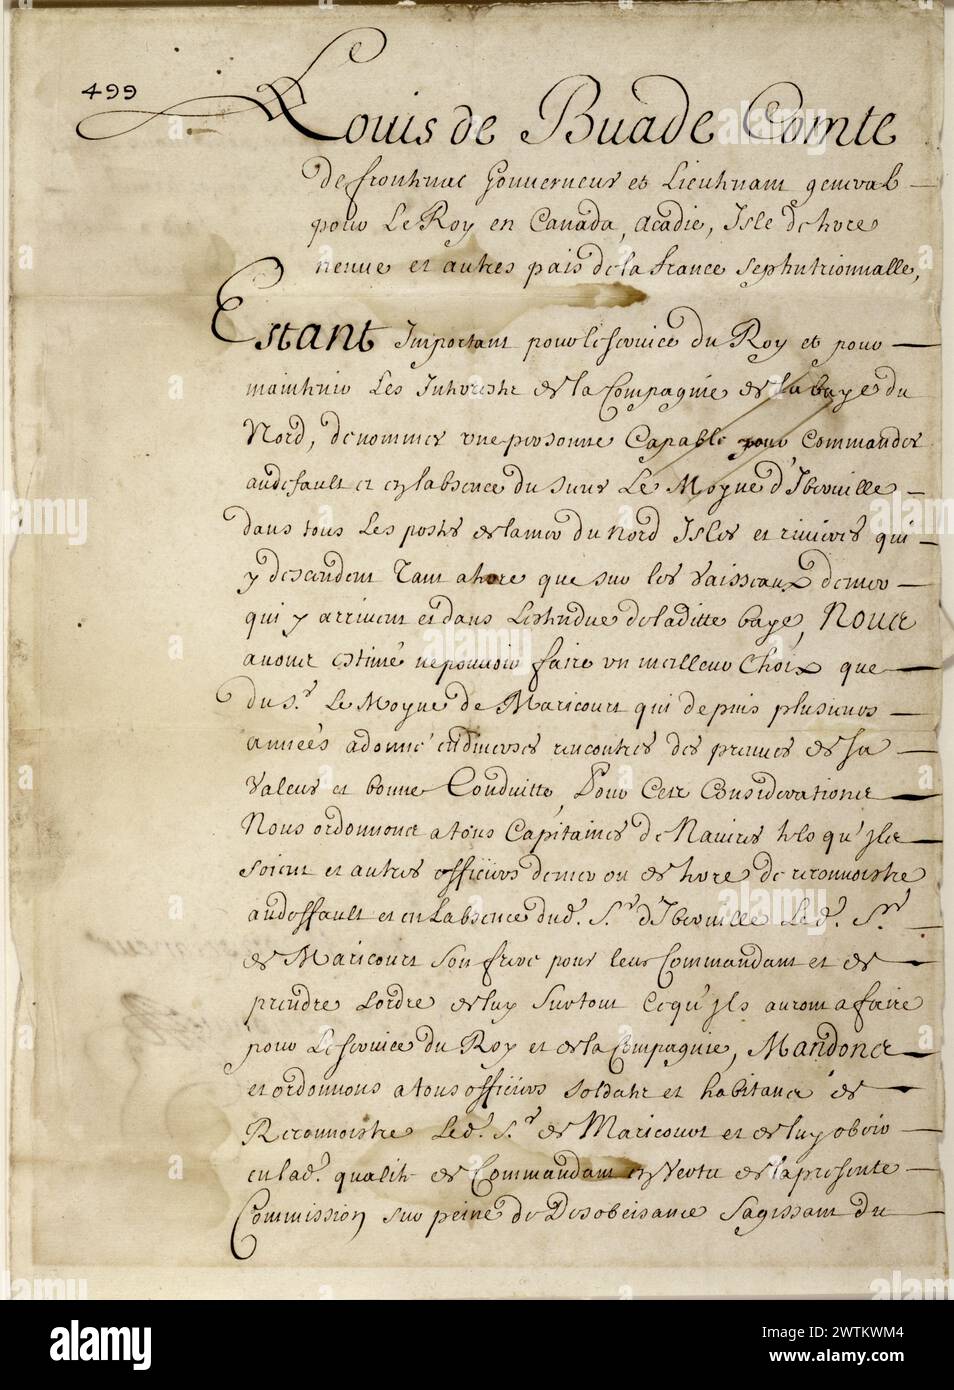 499
Louis de Buade Comte
de frontenac Gouverneur et Lieutenant general
pour Le Roy en Canada, acadie, Isle de terre
neuue et autres pais de la france septentrionnalle,
Estant Important pour le seruice du Roy et pour
maintenir Les Interests de la Compagnie de la baye du
Nord, de nommer vne personne Capable pour commander
au deffault et en labsence du sieur Le Moyne d'Iberuille
dans tous Les postes de la mer du Nord Isles et riuieres qui
y descendent Tant a terre que sur les vaisseaux de mer
qui y arriuent et dans Lestendue de laditte baye, Nous
auons estimé ne pouuoir faire vn meilleur Choix que
du Sr. Le Moyne de Maricourt qui depuis plusieurs
années a donné en diuerses rencontres des preuues de sa
Valeur et bonne Conduitte, Pour Ces Considerations
Nous ordonnons a tous Capitaines de Nauires tels qu'jls
soient et autres officiers de mer ou de terre de reconnoistre
au deffault et en Labsence dud. Sr. d'Iberuille Led. Sr.
de Maricourt son frere pour leur Commandant et de
prendre Lordre de luy surtout ce qu'jls auront a faire
pour Le seruice du Roy et de la Compagnie, Mandons
et ordonnons a tous officiers soldats et habitans de
Reconnoistre Led. Sr. de Maricourt et de luy obeir
en lad. qualité de Commandant en Vertu de la presente
Commission sur peine de Desobeissance sagissant du
alamy
Image ID: 2WTKWM4
www.alamy.com